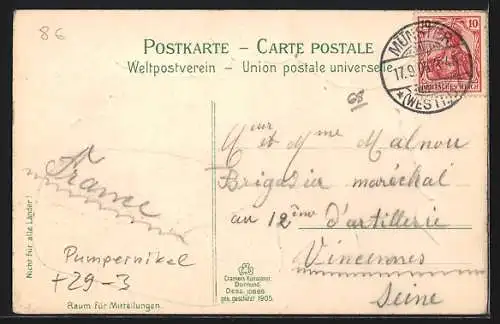 86
POSTKARTE - CARTE POSTALE
Weltpostverein - Union postale universelle
10
DEUTSCHES REICH
MÜNSTER
17.9.
*(WESTF.)
68
Meur et Mme Malnou
Brigasier maréchal
au 12ème d'artillerie
Vincennes
Seine
France
Nicht für alle Länder!
Pumpernikel
+29-3
Raum für Mitteilungen.
Dortmund.
Dess. 10896
ges. geschützt 1905.